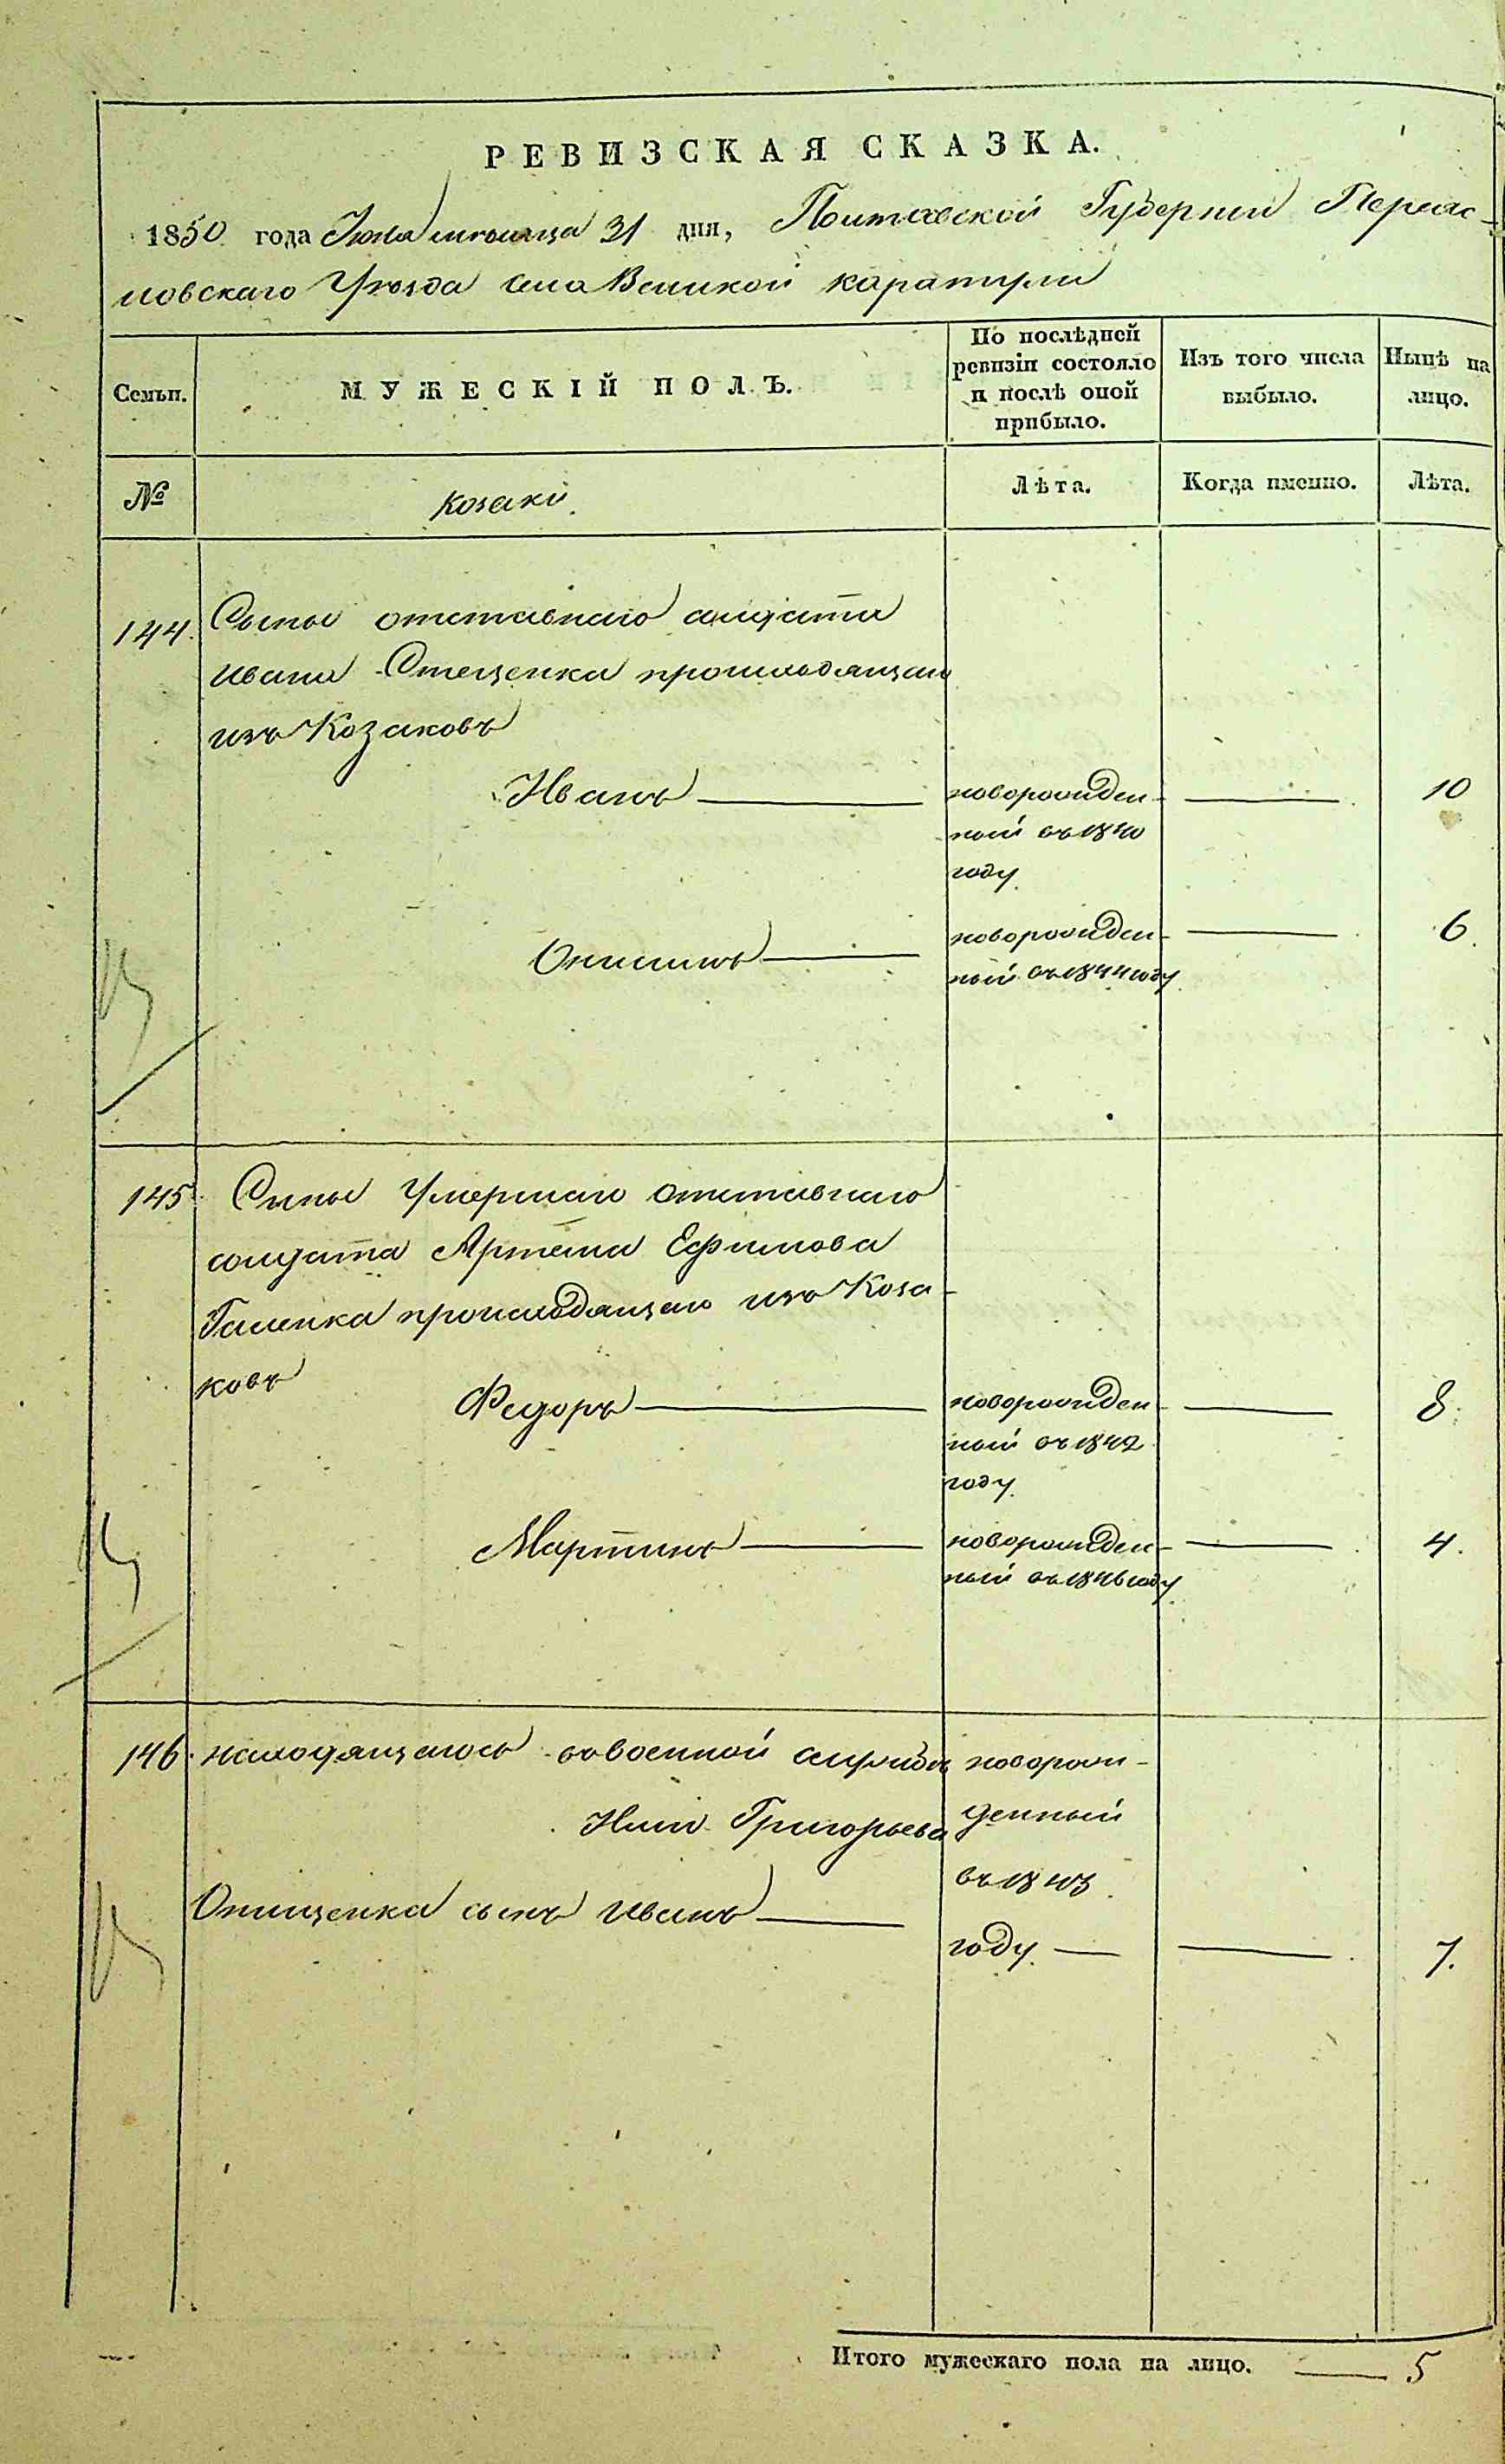 РЕВИЗСКАЯ СКАЗКА.
1850 года Июля месяца 31 дня, Полтавской Губерніи Переяс-
ловскаго Уѣзда села Великой каратули
Семьи.
МУЖЕСКІЙ ПОЛЪ.
По послѣдней
ревизіи состояло
и послѣ оной
прибыло.
Изъ того числа
выбыло.
Нынѣ на
лицо.
№
козаки.
Лѣта.
Когда именно.
Лѣта.
144. Сыны отставнаго солдата
Ивана Стеценка происходящаго
изъ Козаковъ
Иванъ новорожден- 10
ный въ 1840
году.
Онисимъ новорожден- 6.
ный въ 1844 году.
145. Сыны Умершаго отставнаго
солдата Артема Ефимова
Галенка происходящаго изъ Коза-
ковъ
Федоръ новорожден- 8.
ный въ 1842
году.
Мартинъ новорожден- 4.
ный въ 1846 году.
146. находящагося въ военной службѣ новорож-
Григорьева денный
въ 1843
Онищенка сынъ Иванъ
году. 7.
Итого мужескаго пола на лицо. 5